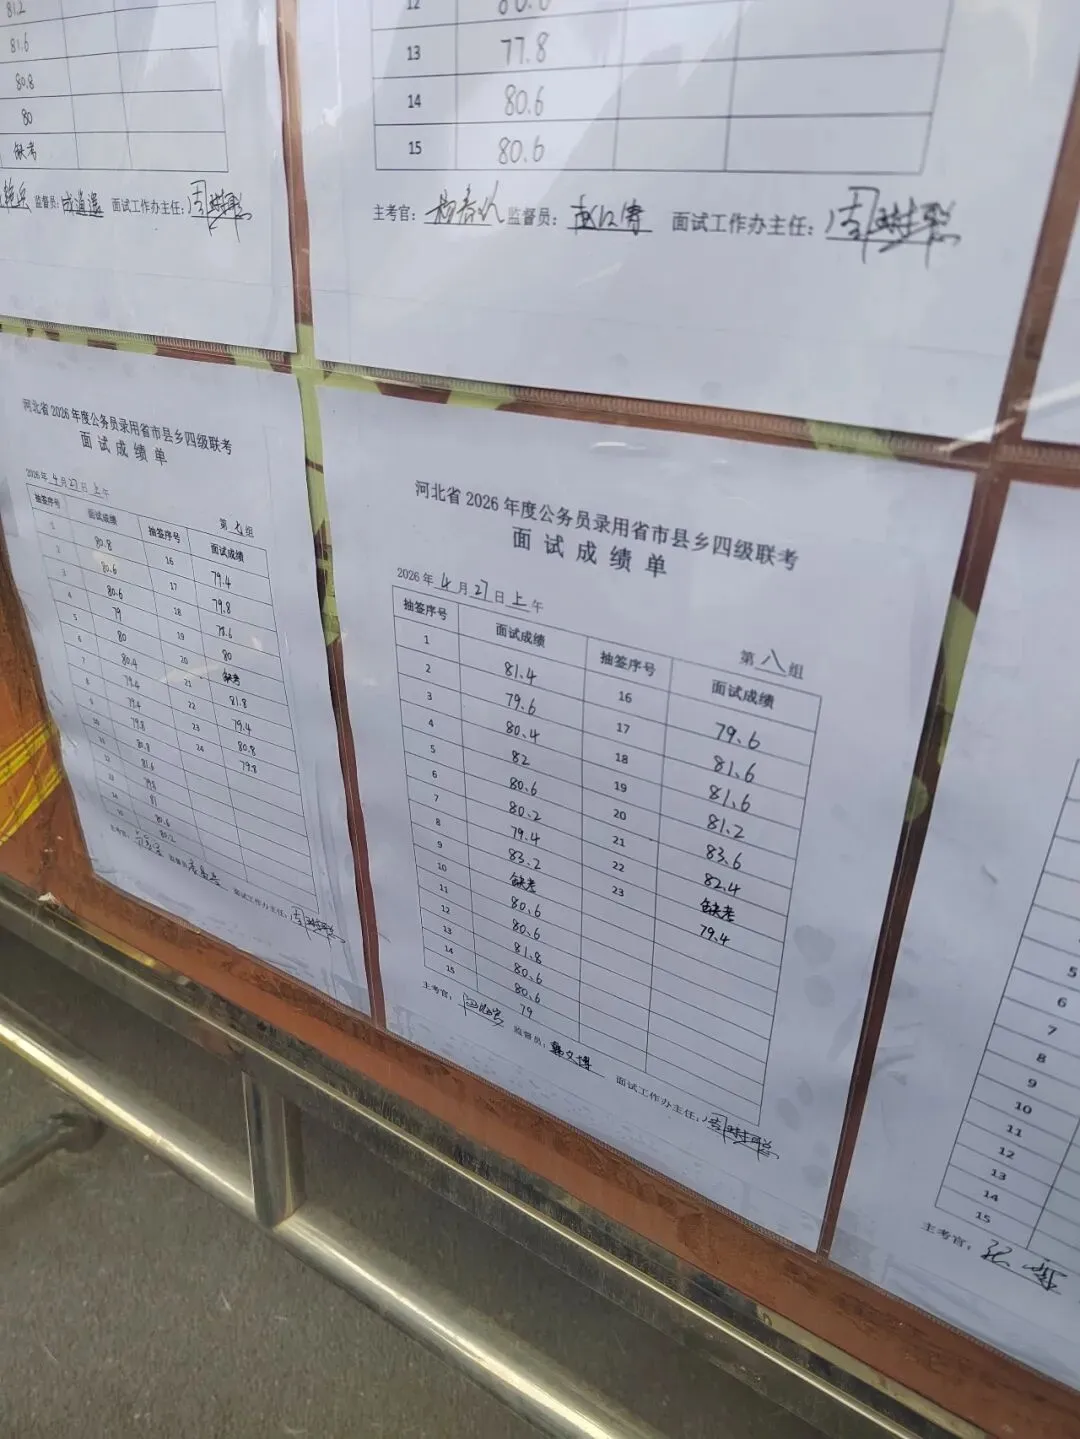 81.2
81.6
80.8
80
缺考
监督员: 面试工作办主任:
12 80.6
13 77.8
14 80.6
15 80.6
主考官: 监督员: 面试工作办主任:
河北省2026年度公务员录用省市县乡四级联考
面试成绩单
2026年4月27日上午
第七组
抽签序号 面试成绩 抽签序号 面试成绩
1 80.8 16 79.4
2 80.6 17 79.8
3 80.6 18 78.6
4 79 19 80
5 80 20 缺考
6 80.4 21 81.8
7 79.4 22 79.4
8 79.4 23 80.8
9 79.8 24 79.8
10 80.8
11 81.6
12 79.8
13 81
14 80.6
15 80.2
主考官: 监督员: 面试工作办主任:
河北省2026年度公务员录用省市县乡四级联考
面试成绩单
2026年4月27日上午
第八组
抽签序号 面试成绩 抽签序号 面试成绩
1 81.4 16 79.6
2 79.6 17 81.6
3 80.4 18 81.6
4 82 19 81.2
5 80.6 20 83.6
6 80.2 21 82.4
7 79.4 22 缺考
8 83.2 23 79.4
9 缺考
10 80.6
11 80.6
12 81.8
13 80.6
14 80.6
15 79
主考官: 监督员:韩文博 面试工作办主任:
5
6
7
8
9
10
11
12
13
14
15
主考官: